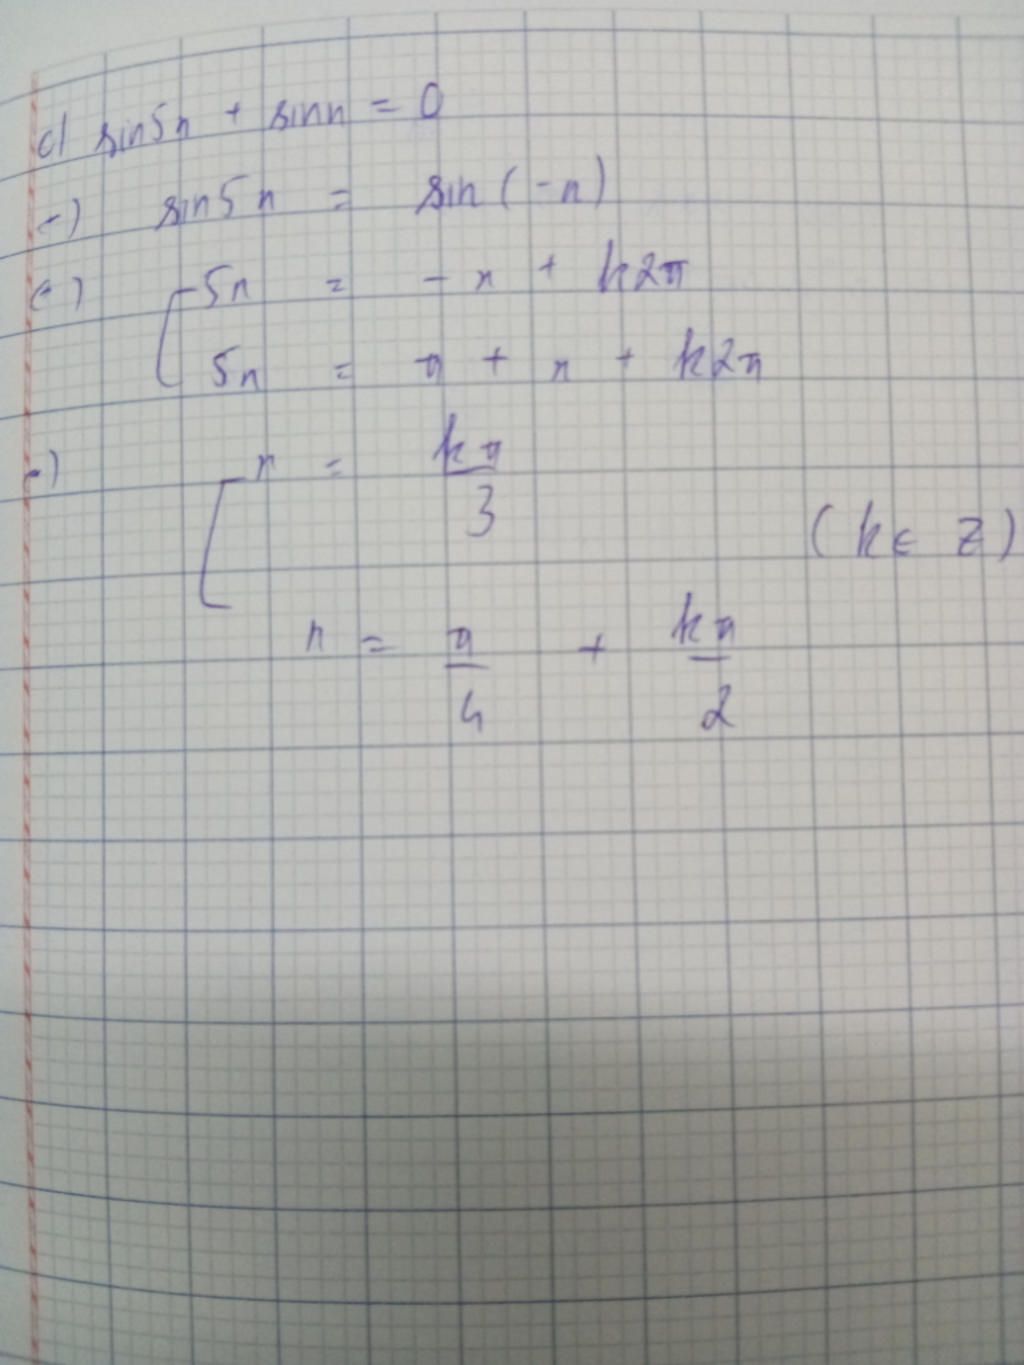 c) sin5x + sinx = 0
(-) sin5x = sin(-x)
(-) [ 5x = -x + k2π
5x = π + x + k2π
(-) [ x = kπ/3
(k ∈ Z)
x = π/4 + kπ/2